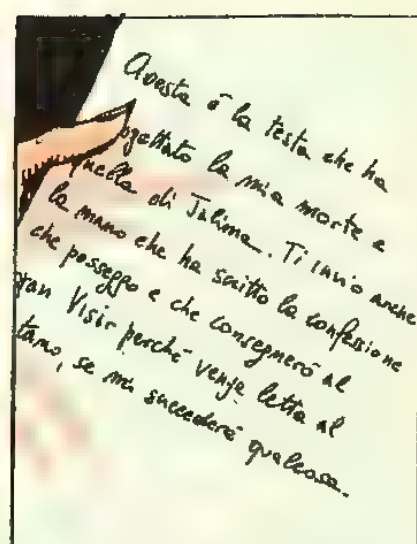 Questa é la testa che ha
ogettato la mia morte e
quella di Jalima. Ti invio anche
la mano che ha scritto la confessione
che posseggo e che consegneró al
gran Visir perché venga letta al
tano, se mi succederá qualcosa.